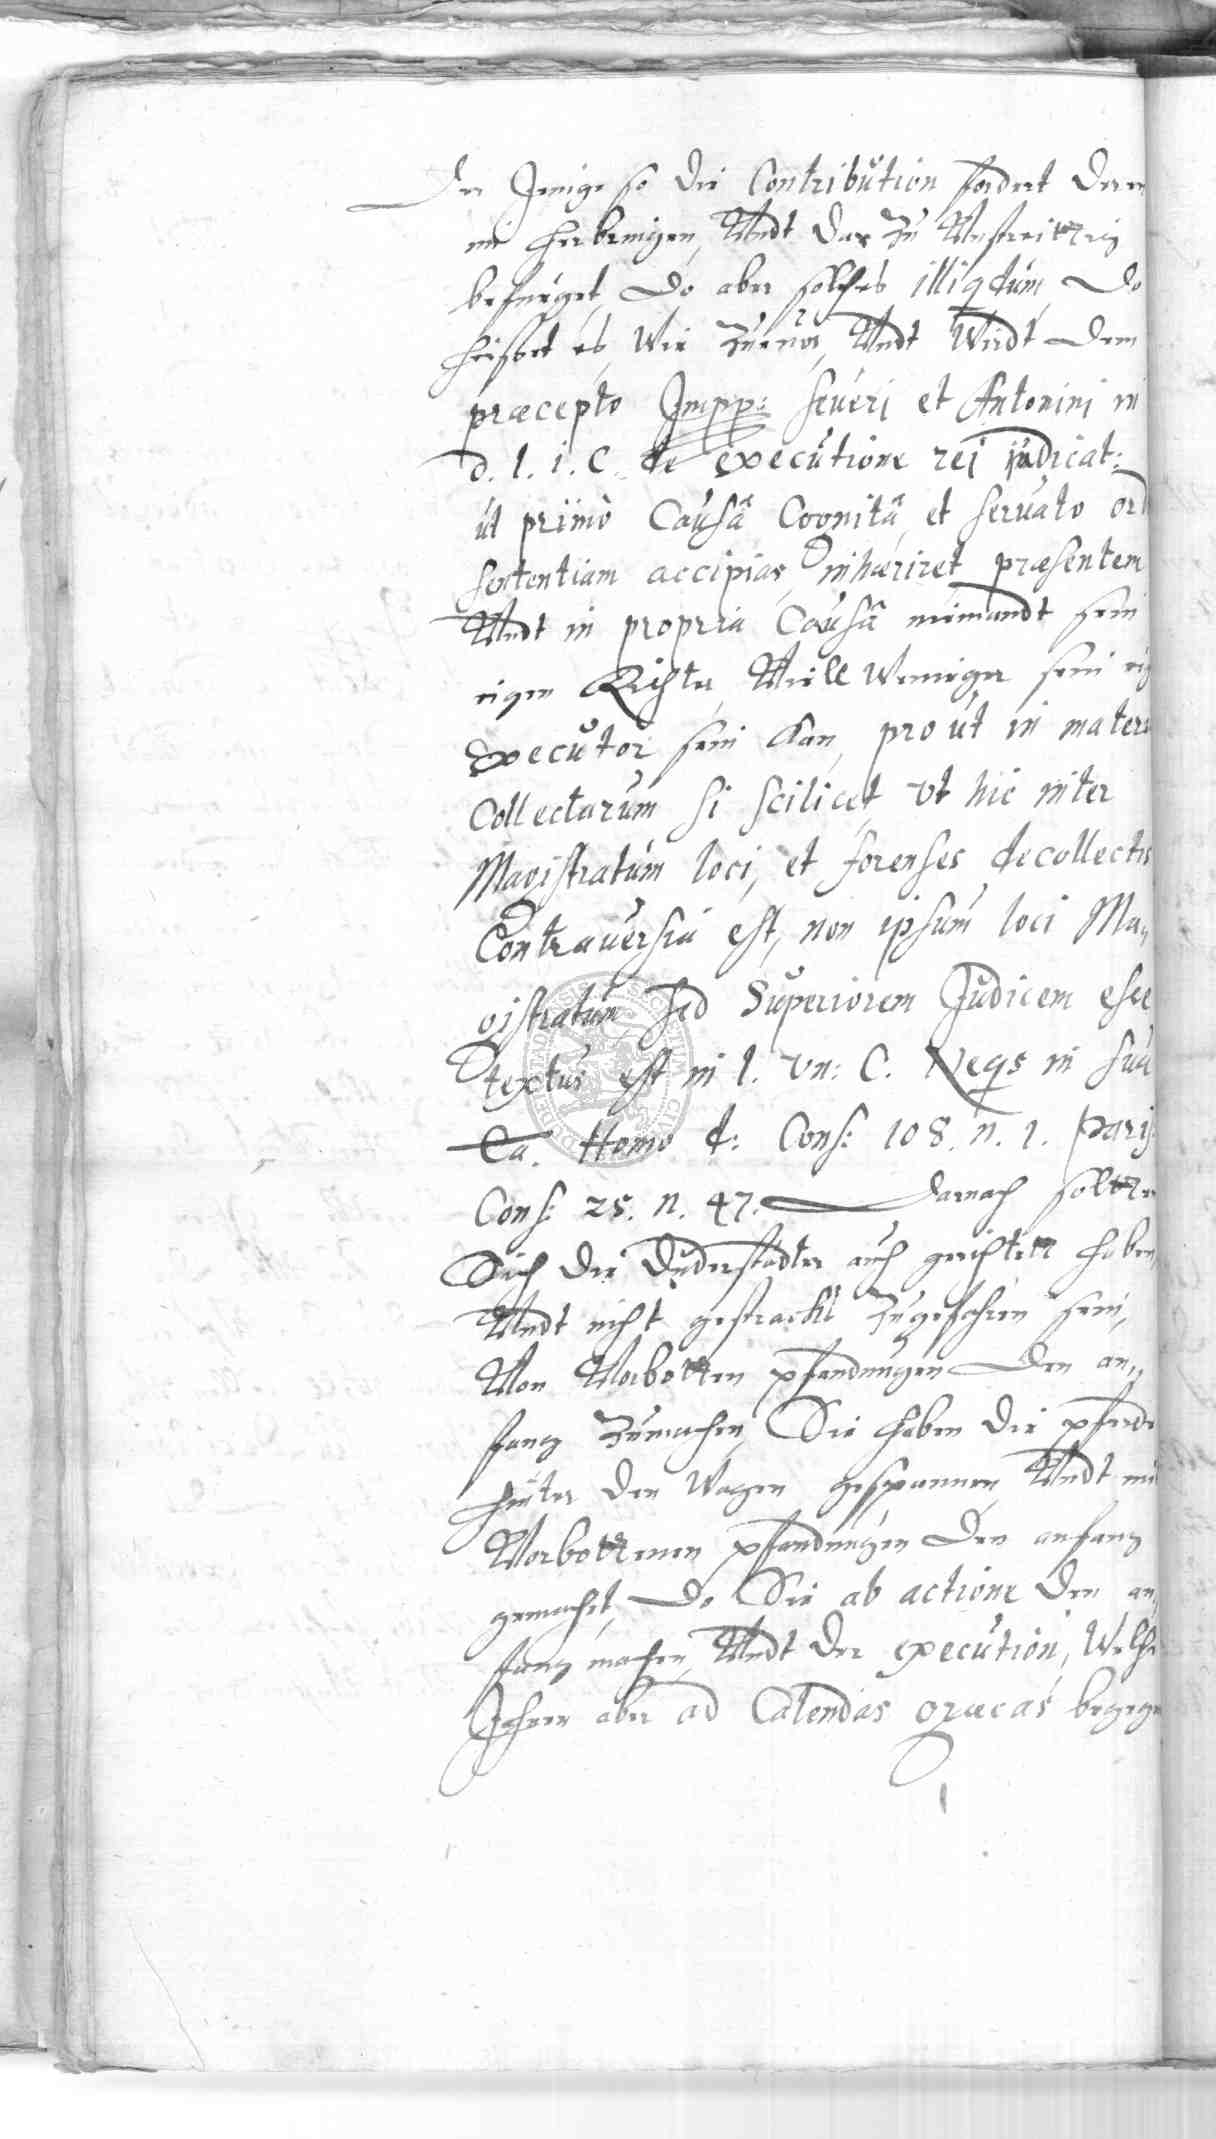 Der Jenige so die Contribution fordert deren
im herbringen, Undt dar Zu Unstreittig
befueget, Do aber solches illiqdum, Do
heisset es, Wie Zuuor, Undt Wirdt dem
præcepto Impp: Seueri et Antonini in
d. l. 1. C. de executione rei judicat:
ut primò Causâ Cognitâ, et seruato ord
sententiam accipias, inhæriret præsentem
Undt in propria Causâ niemandt sein
eigen Richter, Viell Weniger sein eig
Executor sein Kan, pro ut in materi
Collectarum si scilicet, vt hic inter
Magistratum loci, et forenses de collectis
Contrauersia est, non ipsum loci Ma,,
gistratum sed Superiorem Judicem esse
textus est in l. vn: C. Neqs in sua
Ca. Homo d: Cons: 108. n. 1. Paris:
Cons: 25. n. 47. Darnach soltten
Sich die Duderstadter auch gerichtett haben,
Undt nicht gestrackt Zugefahren sein,
Von Verbotten pfandungen den an,,
fang Zumachen, Sie haben die pferde
hinter den Wagen gespannen, Undt mit
Verbottenen pfandungen den anfang
gemachet, Do Sie ab actione den an,,
fang machen, Undt der execution, Welche
Ihnen aber ad Calendas græcas begegn